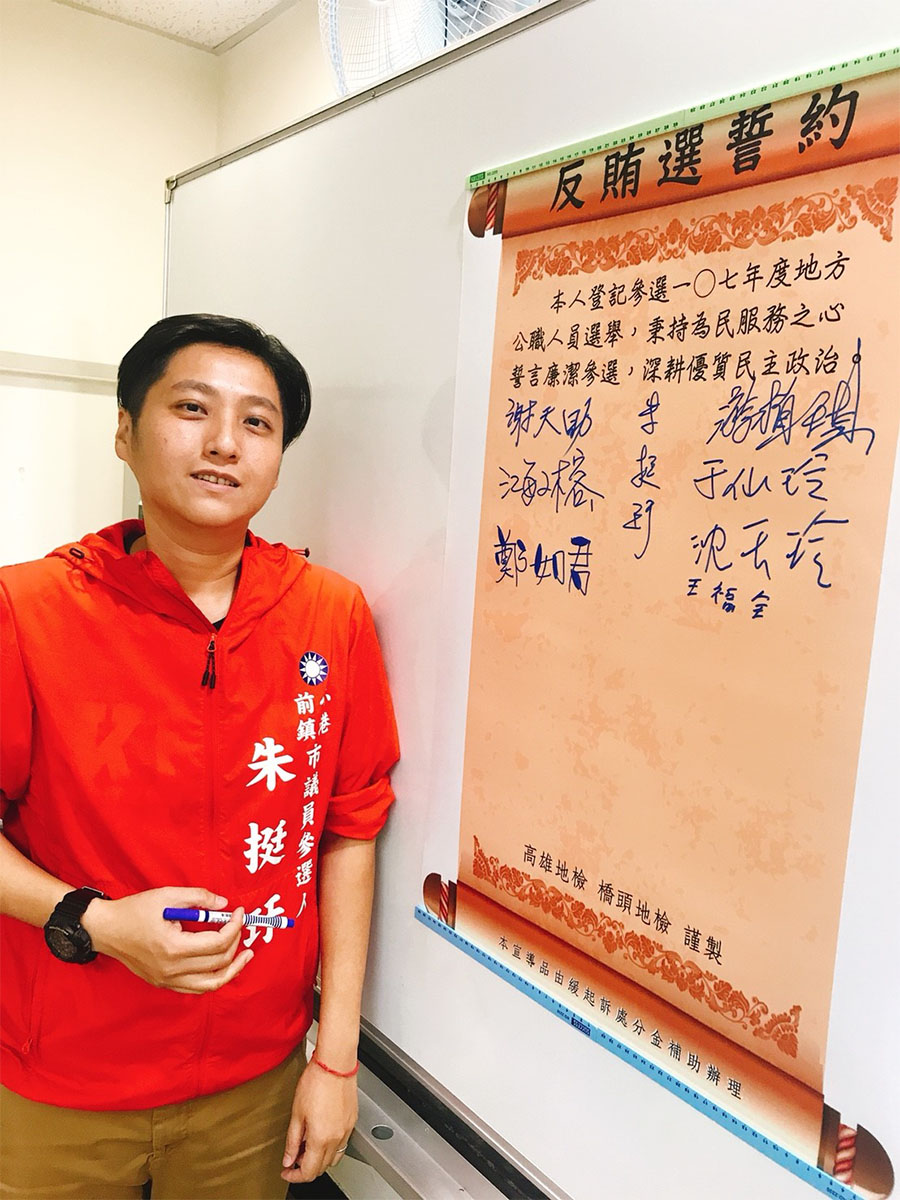 反賄選誓約
本人登記參選一〇七年度地方
公職人員選舉，秉持為民服務之心
誓言廉潔參選，深耕優質民主政治。
謝天助
鄭如君
朱挺玗
于仙玲
王福全
高雄地檢 橋頭地檢 謹製
本宣導品由緩起訴處分金補助辦理
小港
前鎮市議員參選人
朱挺玗